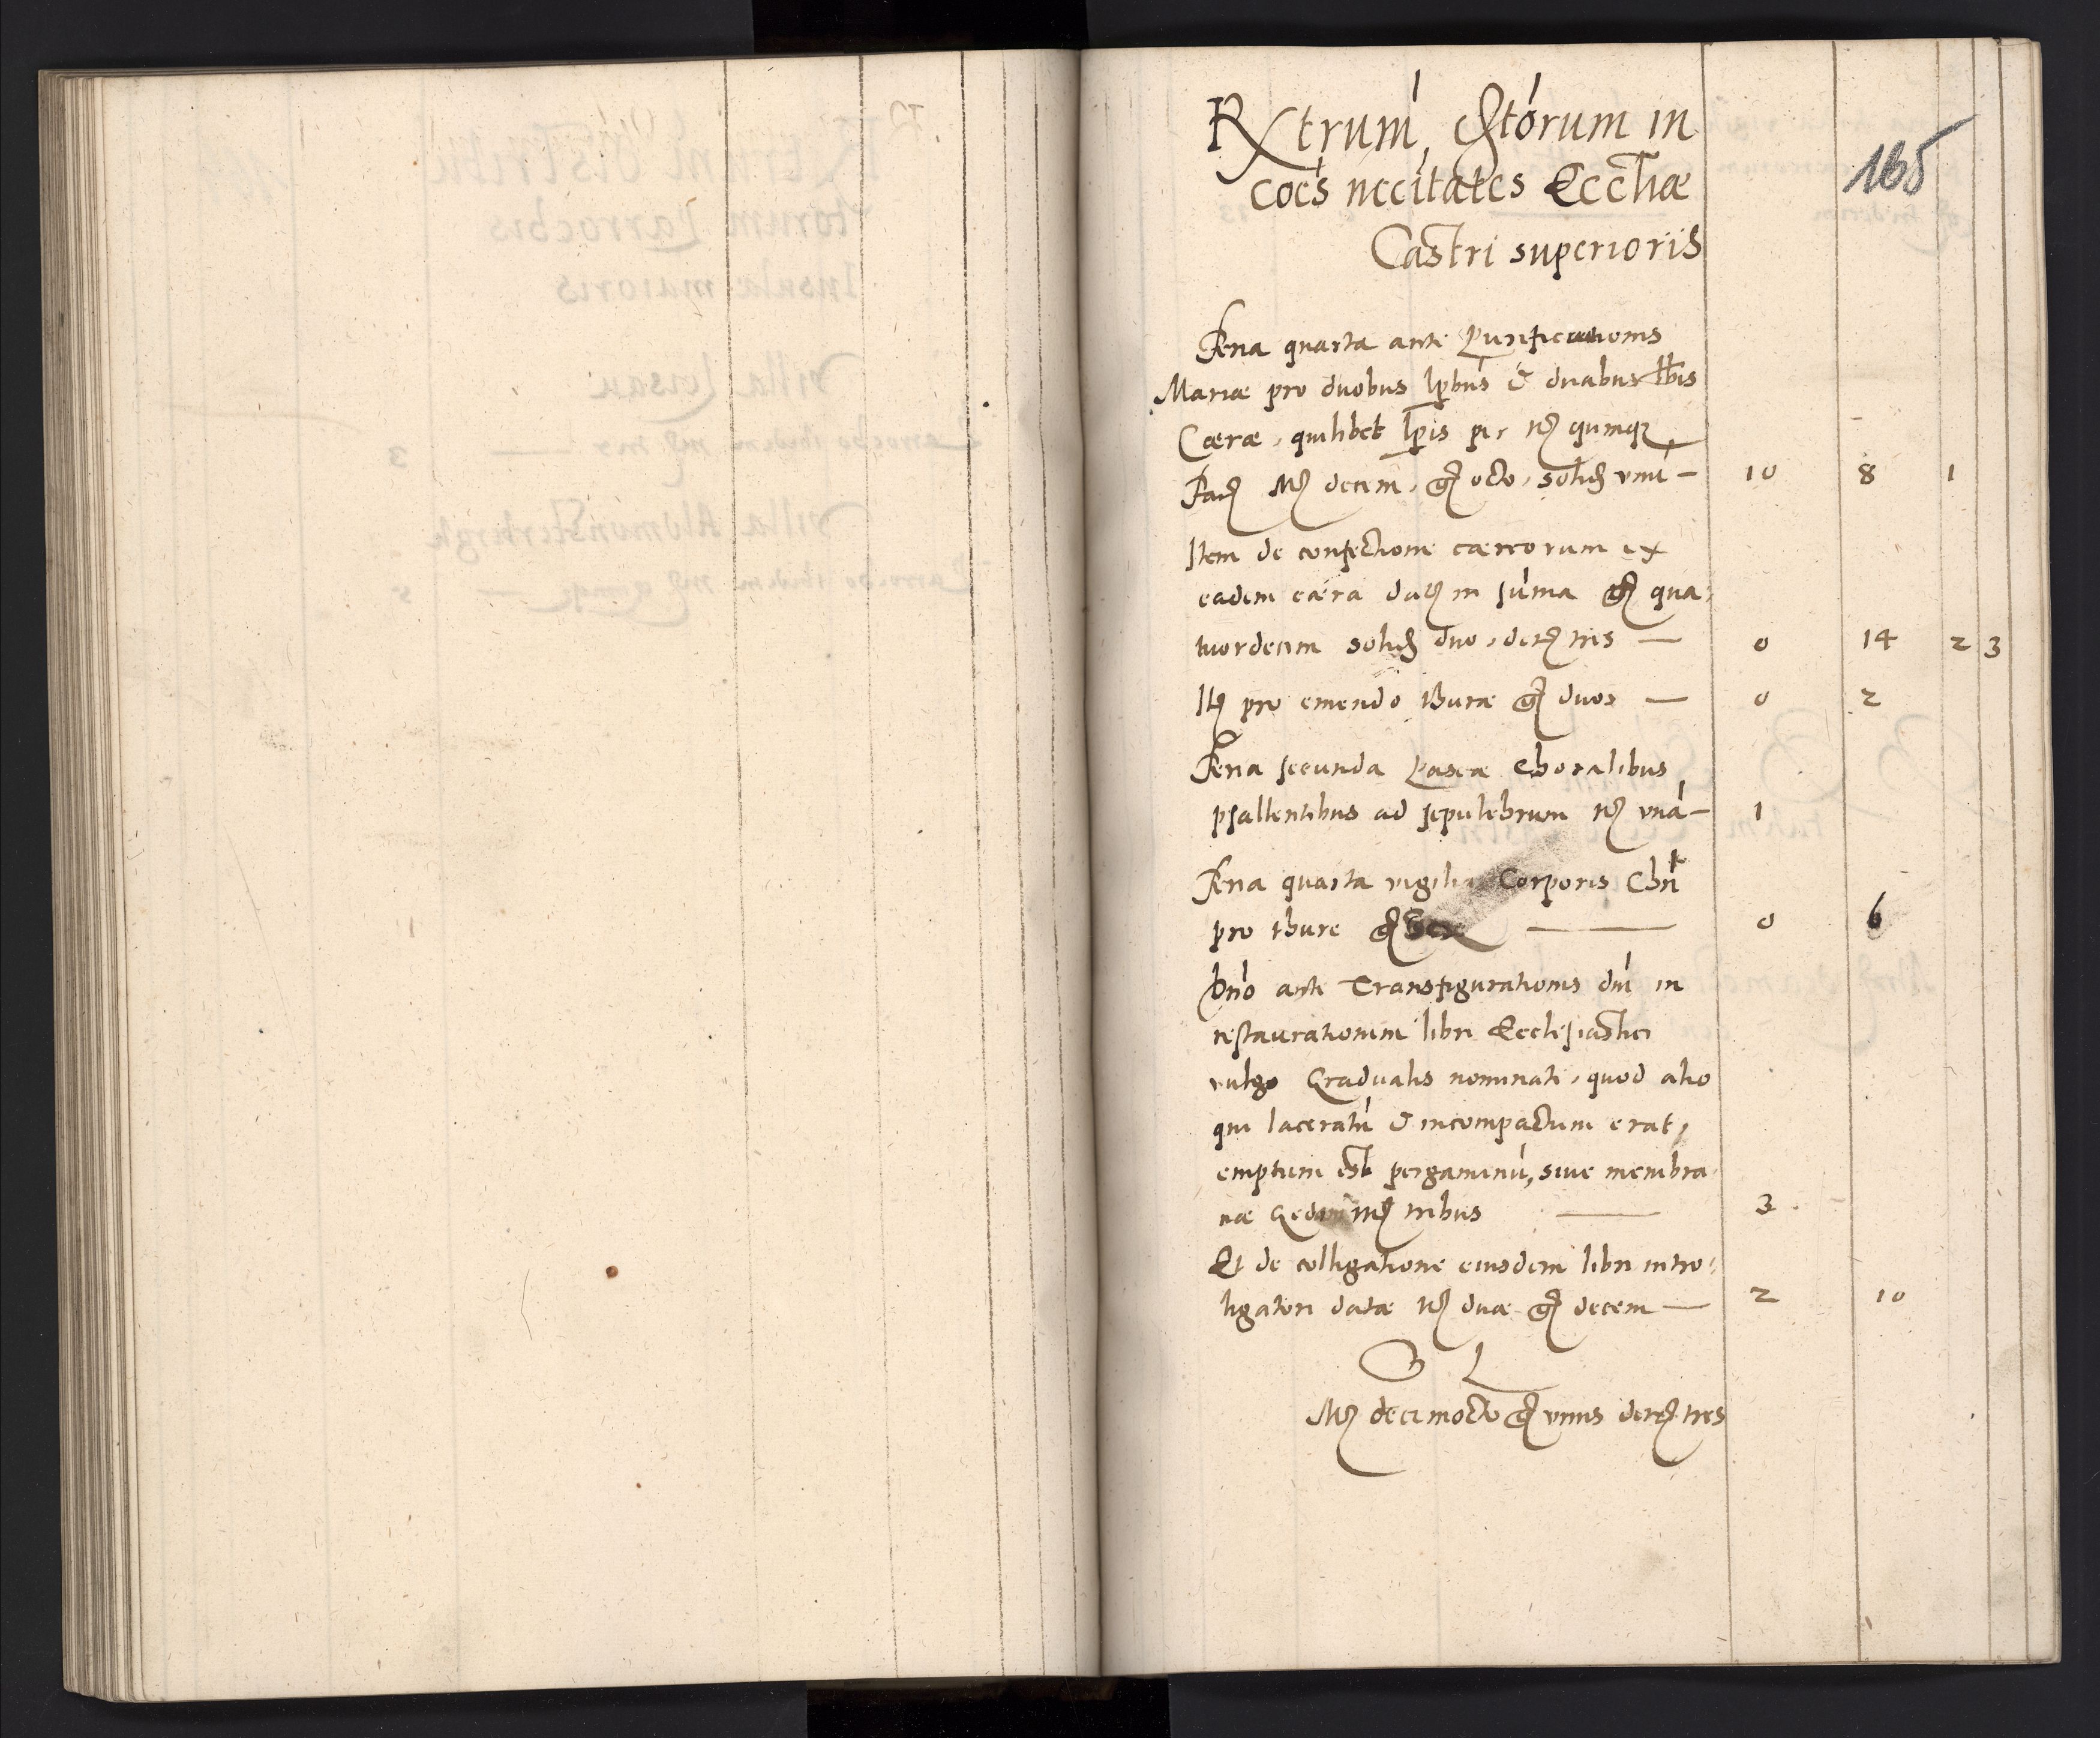 Rxtrum
in
coe͂s nec͂itates Eccl͂iæ
165
Castri superioris
Feria quarta ante Purificationis
Mariæ pro duobus lp͂bus & duabus lb͂is
Cæræ, quilibet lp͂is per mr͂ quinqꝫ
Facȷ Mr͂ decem, gr͂ octo, solid͂ vnu͂ — 10 8 1
Item de confectione cæreorum ex
eadem cæra dat͂ in sum͂a gr͂ qua:
tuordecim solid͂ duo, den͂ tres — 0 14 2 3
It͂ pro emendo thuræ gr͂ duos — 0 2
Feria secunda Pascæ Choralibus
psallentibus ad sepulchrum mr͂ vna͂ — 1
Feria quarta vigilia Corporis Chr͂i
pro thure gr͂ sex — 0 6
ante Transfigurationis dn͂i in
restaurationem libri Ecclesiastici
vulgo Gradualis nominati, quod alio
qui laceratu͂ & incompactum erat,
emptum est pergaminu͂, siue membra
næ mr͂ tribus — 3
Et de colligatione eiusdem libri intro:
ligatori datæ mr͂ duæ gr͂ decem — 2 10
Mr͂ decimocto gr͂ vnus den͂ tres